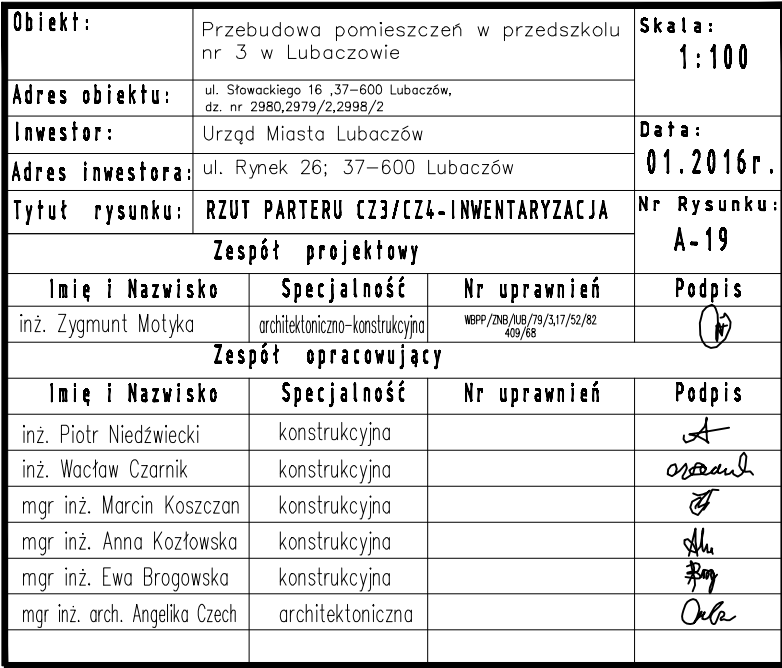 Obiekt: Przebudowa pomieszczeń w przedszkolu
nr 3 w Lubaczowie
Skala:
1:100
Adres obiektu: ul. Słowackiego 16 ,37-600 Lubaczów,
dz. nr 2980,2979/2,2998/2
Inwestor: Urząd Miasta Lubaczów
Data:
01.2016r.
Adres inwestora: ul. Rynek 26; 37-600 Lubaczów
Tytuł rysunku: RZUT PARTERU CZ3/CZ4-INWENTARYZACJA
Nr Rysunku:
A-19
Zespół projektowy
Imię i Nazwisko Specjalność Nr uprawnień Podpis
inż. Zygmunt Motyka architektoniczno-konstrukcyjna WBPP/ZNB/IUB/79/3,17/52/82
409/68
Zespół opracowujący
Imię i Nazwisko Specjalność Nr uprawnień Podpis
inż. Piotr Niedźwiecki konstrukcyjna
inż. Wacław Czarnik konstrukcyjna
mgr inż. Marcin Koszczan konstrukcyjna
mgr inż. Anna Kozłowska konstrukcyjna
mgr inż. Ewa Brogowska konstrukcyjna
mgr inż. arch. Angelika Czech architektoniczna